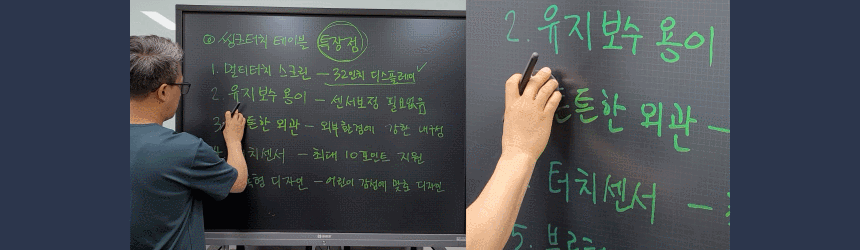 ◎ 씽크터치 테이블 특장점
1. 멀티터치 스크린 – 32인치 디스플레이 ✓
2. 유지보수 용이 – 센서보정 필요없음
3. 튼튼한 외관 – 외부환경에 강한 내구성
터치센서 – 최대 10포인트 지원
디자인 – 어린이 감성에 맞춘 디자인
2. 유지보수 용이
튼튼한 외관 –
터치센서 –
5.